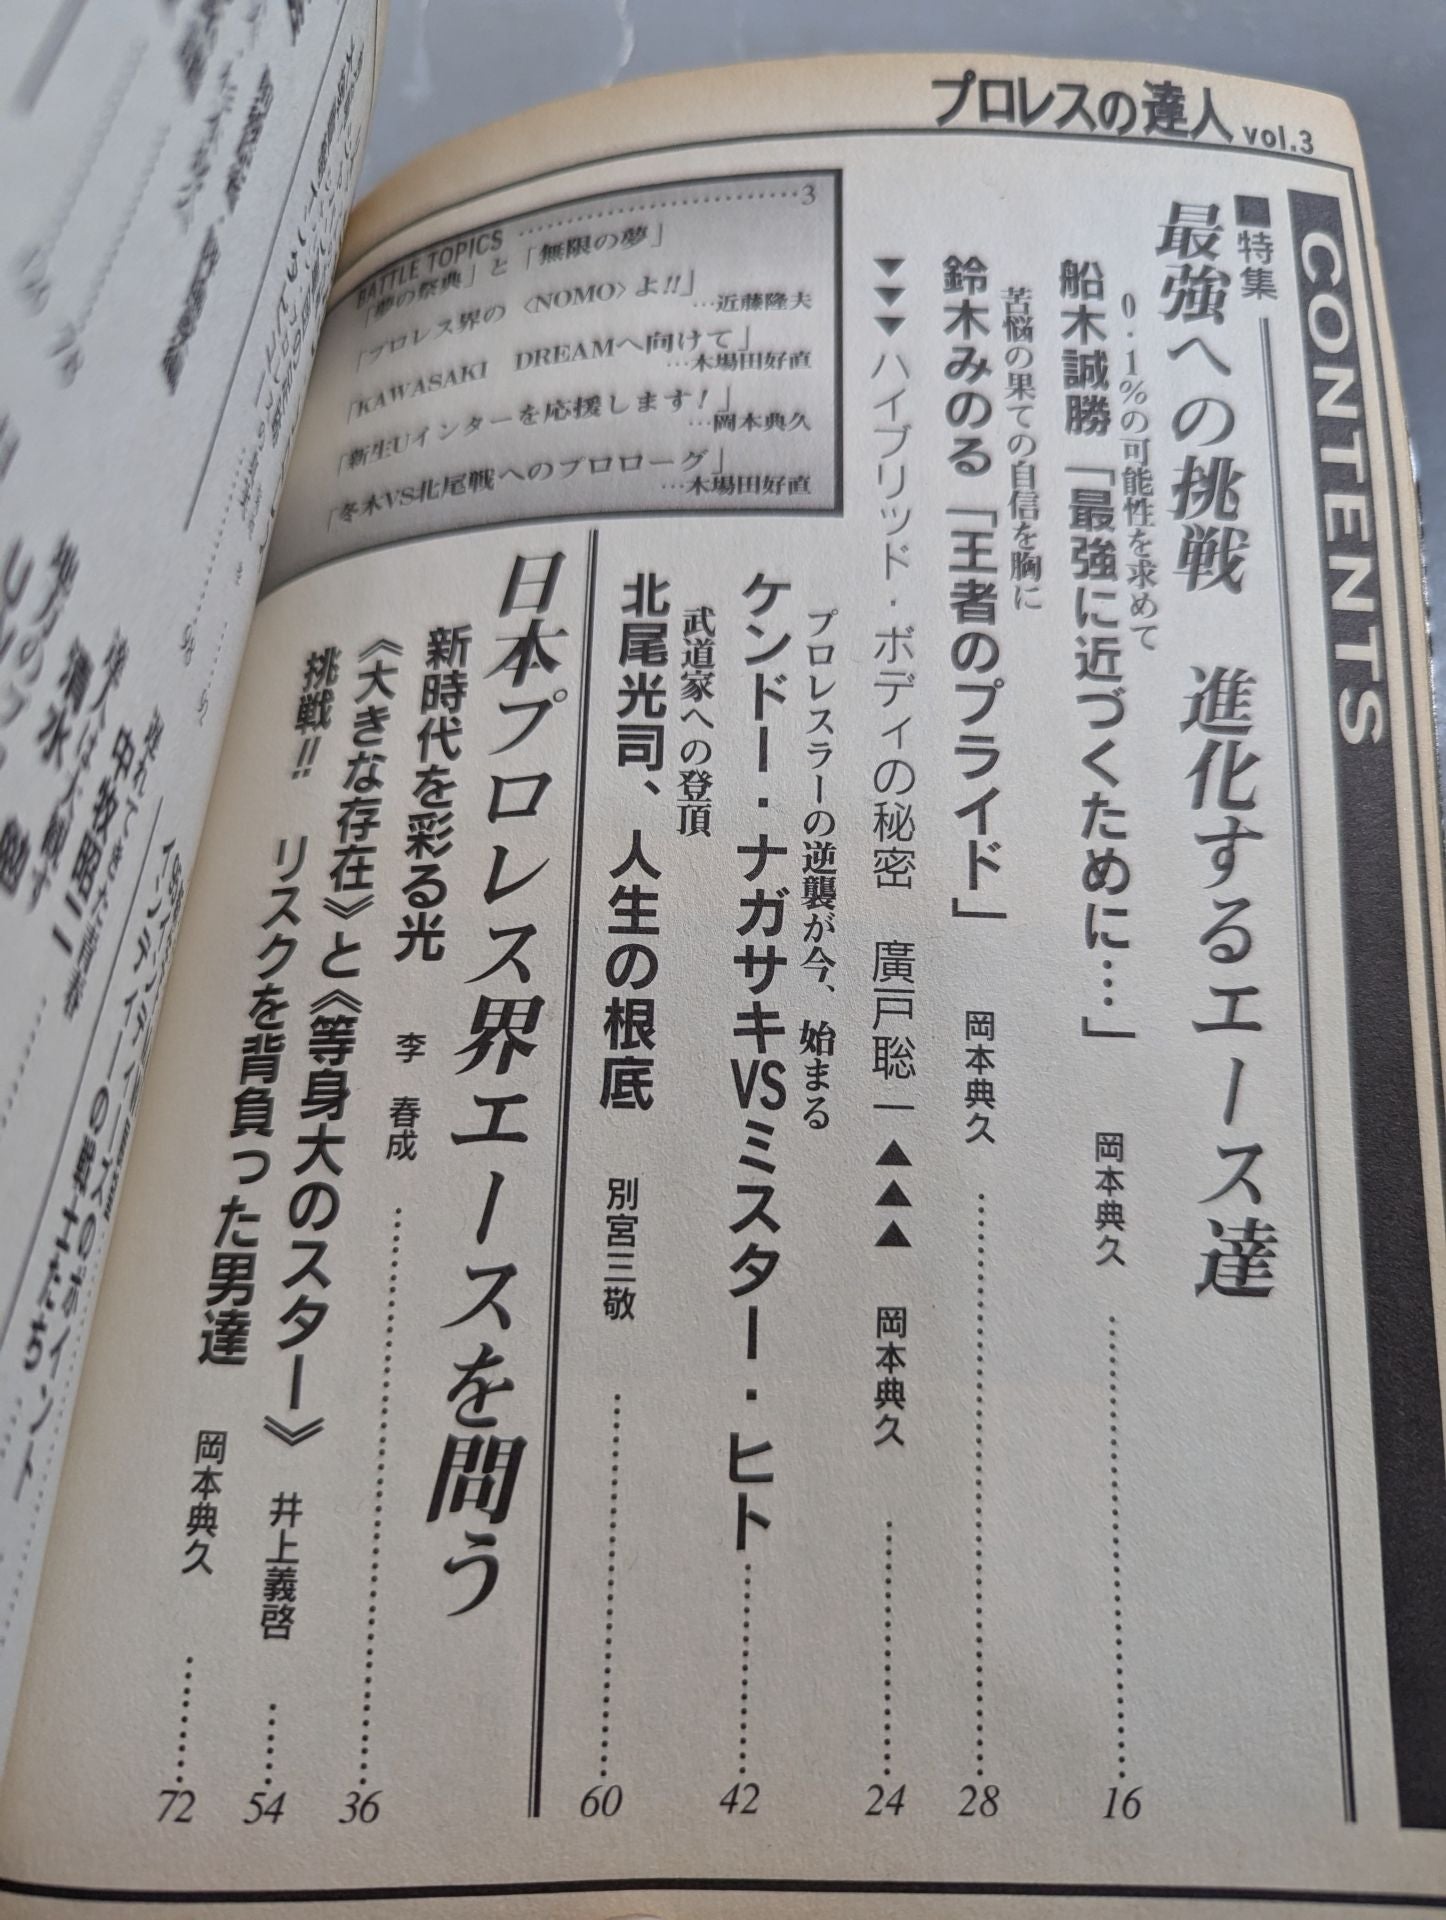 プロレスの達人 vol.3
CONTENTS
■特集
最強への挑戦　進化するエース達
0.1%の可能性を求めて
船木誠勝「最強に近づくために…」　岡本典久……16
苦悩の果ての自信を胸に
鈴木みのる「王者のプライド」　岡本典久……28
▼▼▼ハイブリッド・ボディの秘密　廣戸聡一▲▲▲　岡本典久……24
プロレスラーの逆襲が今、始まる
ケンドー・ナガサキVSミスター・ヒト……42
武道家への登頂
北尾光司、人生の根底　別宮三敬……60
BATTLE TOPICS……3
「夢の祭典」と「無限の夢」
「プロレス界の〈NOMO〉よ!!」
…近藤隆夫
「KAWASAKI DREAMへ向けて」
…木場田好直
「新生Uインターを応援します!」
…岡本典久
「冬木VS北尾戦へのプロローグ」
…木場田好直
日本プロレス界エースを問う
新時代を彩る光　李　春成……36
《大きな存在》と《等身大のスター》　井上義啓……54
挑戦!!　リスクを背負った男達　岡本典久……72